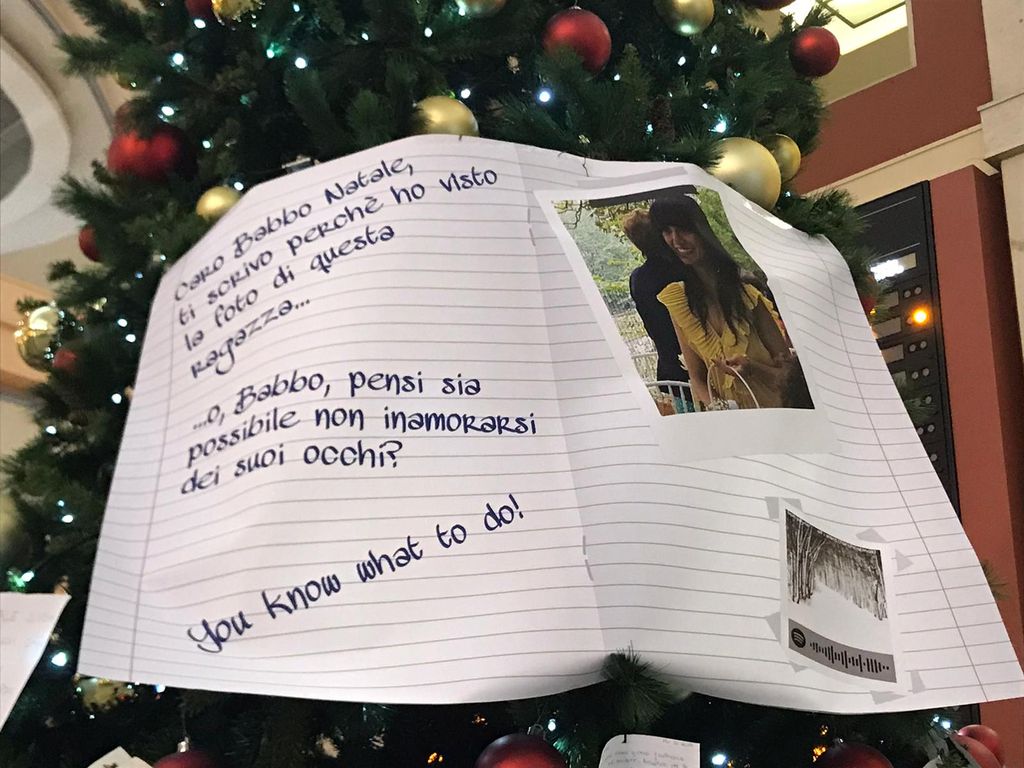 caro Babbo Natale,
ti scrivo perchè ho visto
la foto di questa
ragazza...
...o, Babbo, pensi sia
possibile non inamorarsi
dei suoi occhi?
You know what to do!